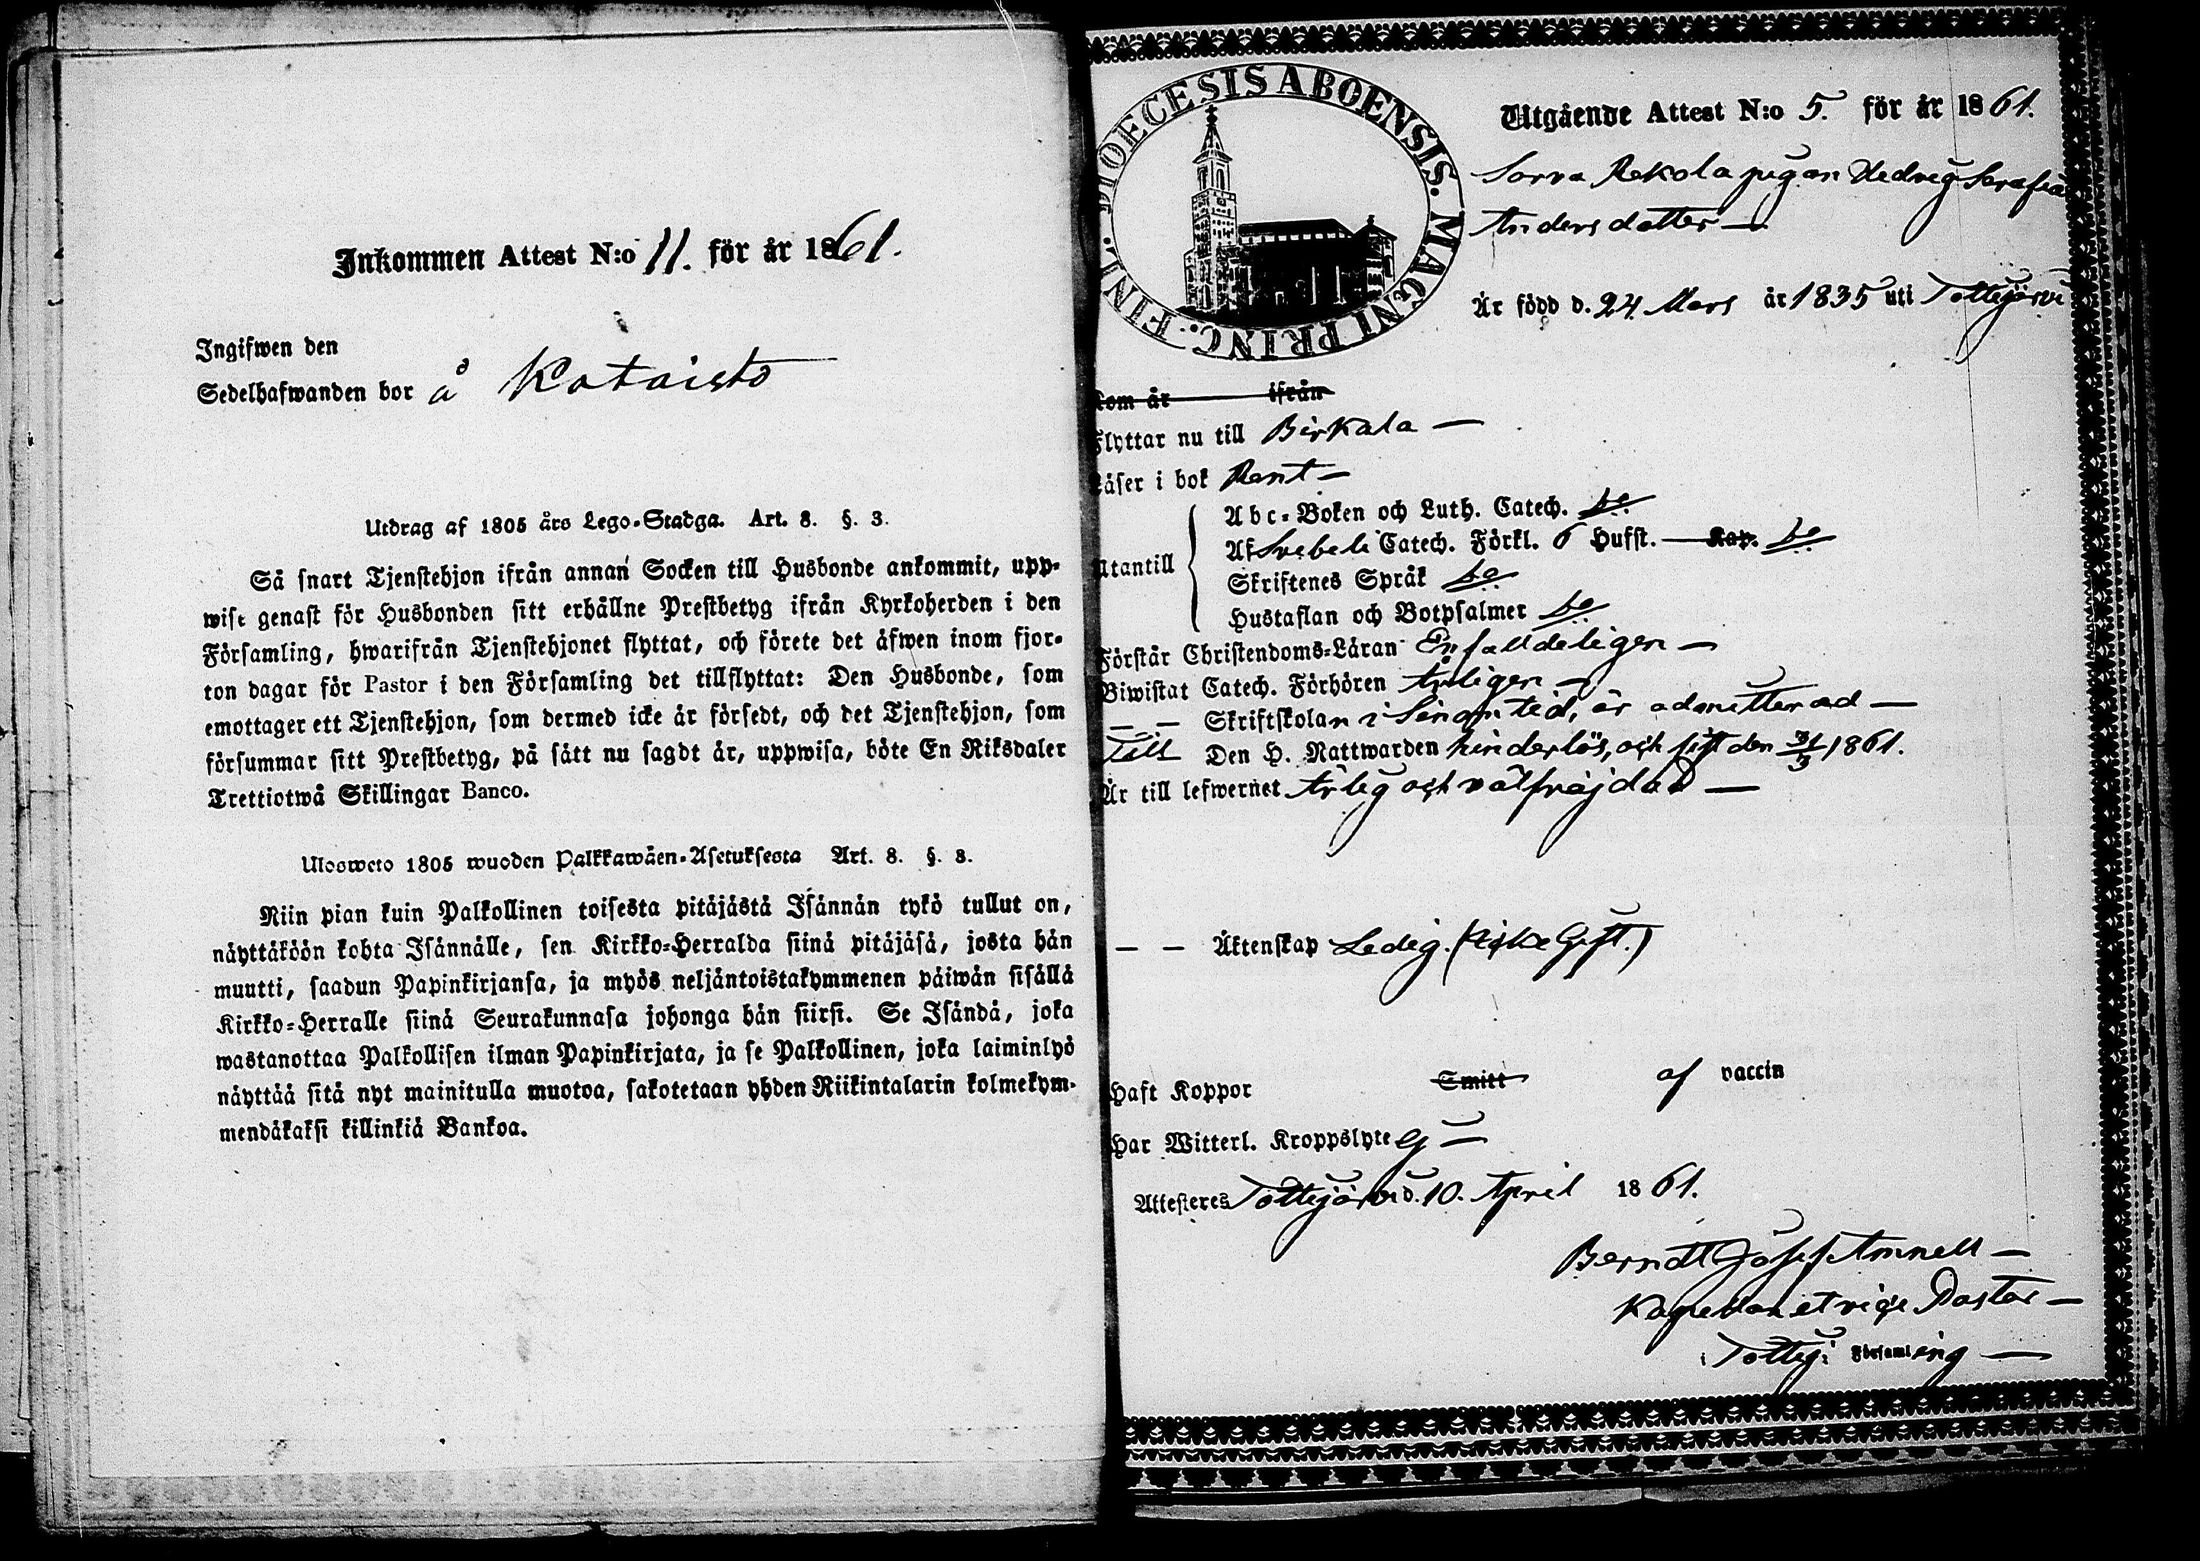 Inkommen Attest N:o 11. för år 1861.
Ingifwen den
Sedelhafwanden bor å Kataisto
Utdrag af 1805 års Lego-Stadga. Art. 8. §. 3.
Så snart Tjenstehjon ifrån annan Socken till Husbonde ankommit, upp-
wise genast för Husbonden sitt erhållne Prestbetyg ifrån Kyrkoherden i den
Församling, hwarifrån Tjenstehjonet flyttat, och förete det äfwen inom fjor-
ton dagar för Pastor i den Församling det tillflyttat: Den Husbonde, som
emottager ett Tjenstehjon, som dermed icke är försedt, och det Tjenstehjon, som
försummar sitt Prestbetyg, på sätt nu sagdt är, uppwisa, böte En Riksdaler
Trettiotwå Skillingar Banco.
Ulosweto 1805 wuoden Palkkawäen-Asetuksesta Art. 8. §. 3.
Niin pian kuin Palkollinen toisesta pitäjästä Isännän tykö tullut on,
näyttäköön kohta Isännälle, sen Kirkko-Herralda siinä pitäjäsä, josta hän
muutti, saadun Papinkirjansa, ja myös neljäntoistakymmenen päiwän sisällä
Kirkko-Herralle siinä Seurakunnasa johonga hän siirsi. Se Isändä, joka
wastanottaa Palkollisen ilman Papinkirjata, ja se Palkollinen, joka laiminlyö
näyttää sitä nyt mainitulla muotoa, sakotetaan yhden Riikintalarin kolmekym-
mendäkaksi killinkiä Bankoa.
DIOECESIS ABOENSIS. MAGNI PRINC. FINL.
Utgående Attest N:o 5. för år 1861.
Sorva Rekola pigan Hedvig Serafia
Andersdotter —
Är född d. 24 Mars år 1835 uti Tottijärvi
Kom år ifrån
Flyttar nu till Birkala —
Läser i bok Rent —
Utantill
Abc-Boken och Luth. Catech.
Af Svebeli Catech. Förkl. 6 Hufst. — Kap.
Skriftenes Språk
Hustaflan och Botpsalmer
Förstår Christendoms-Läran Enfalldeligen —
Biwistat Catech. Förhören Årligen —
— — Skriftskolan i sinom tid, är admitterad —
till Den H. Nattwarden hinderlös, och sist den 31/3 1861.
Är till lefwernet Ärlig och välfräjdad —
— — Äktenskap Ledig. (Icke Gift.)
Haft Koppor Smitt af vaccin
Har Witterl. Kroppslyte Ej —
Attesteres Tottijärvi d. 10. April 1861.
Berndt Josef Amnell —
Kapellan et vice Pastor —
i Tottij: Församling —